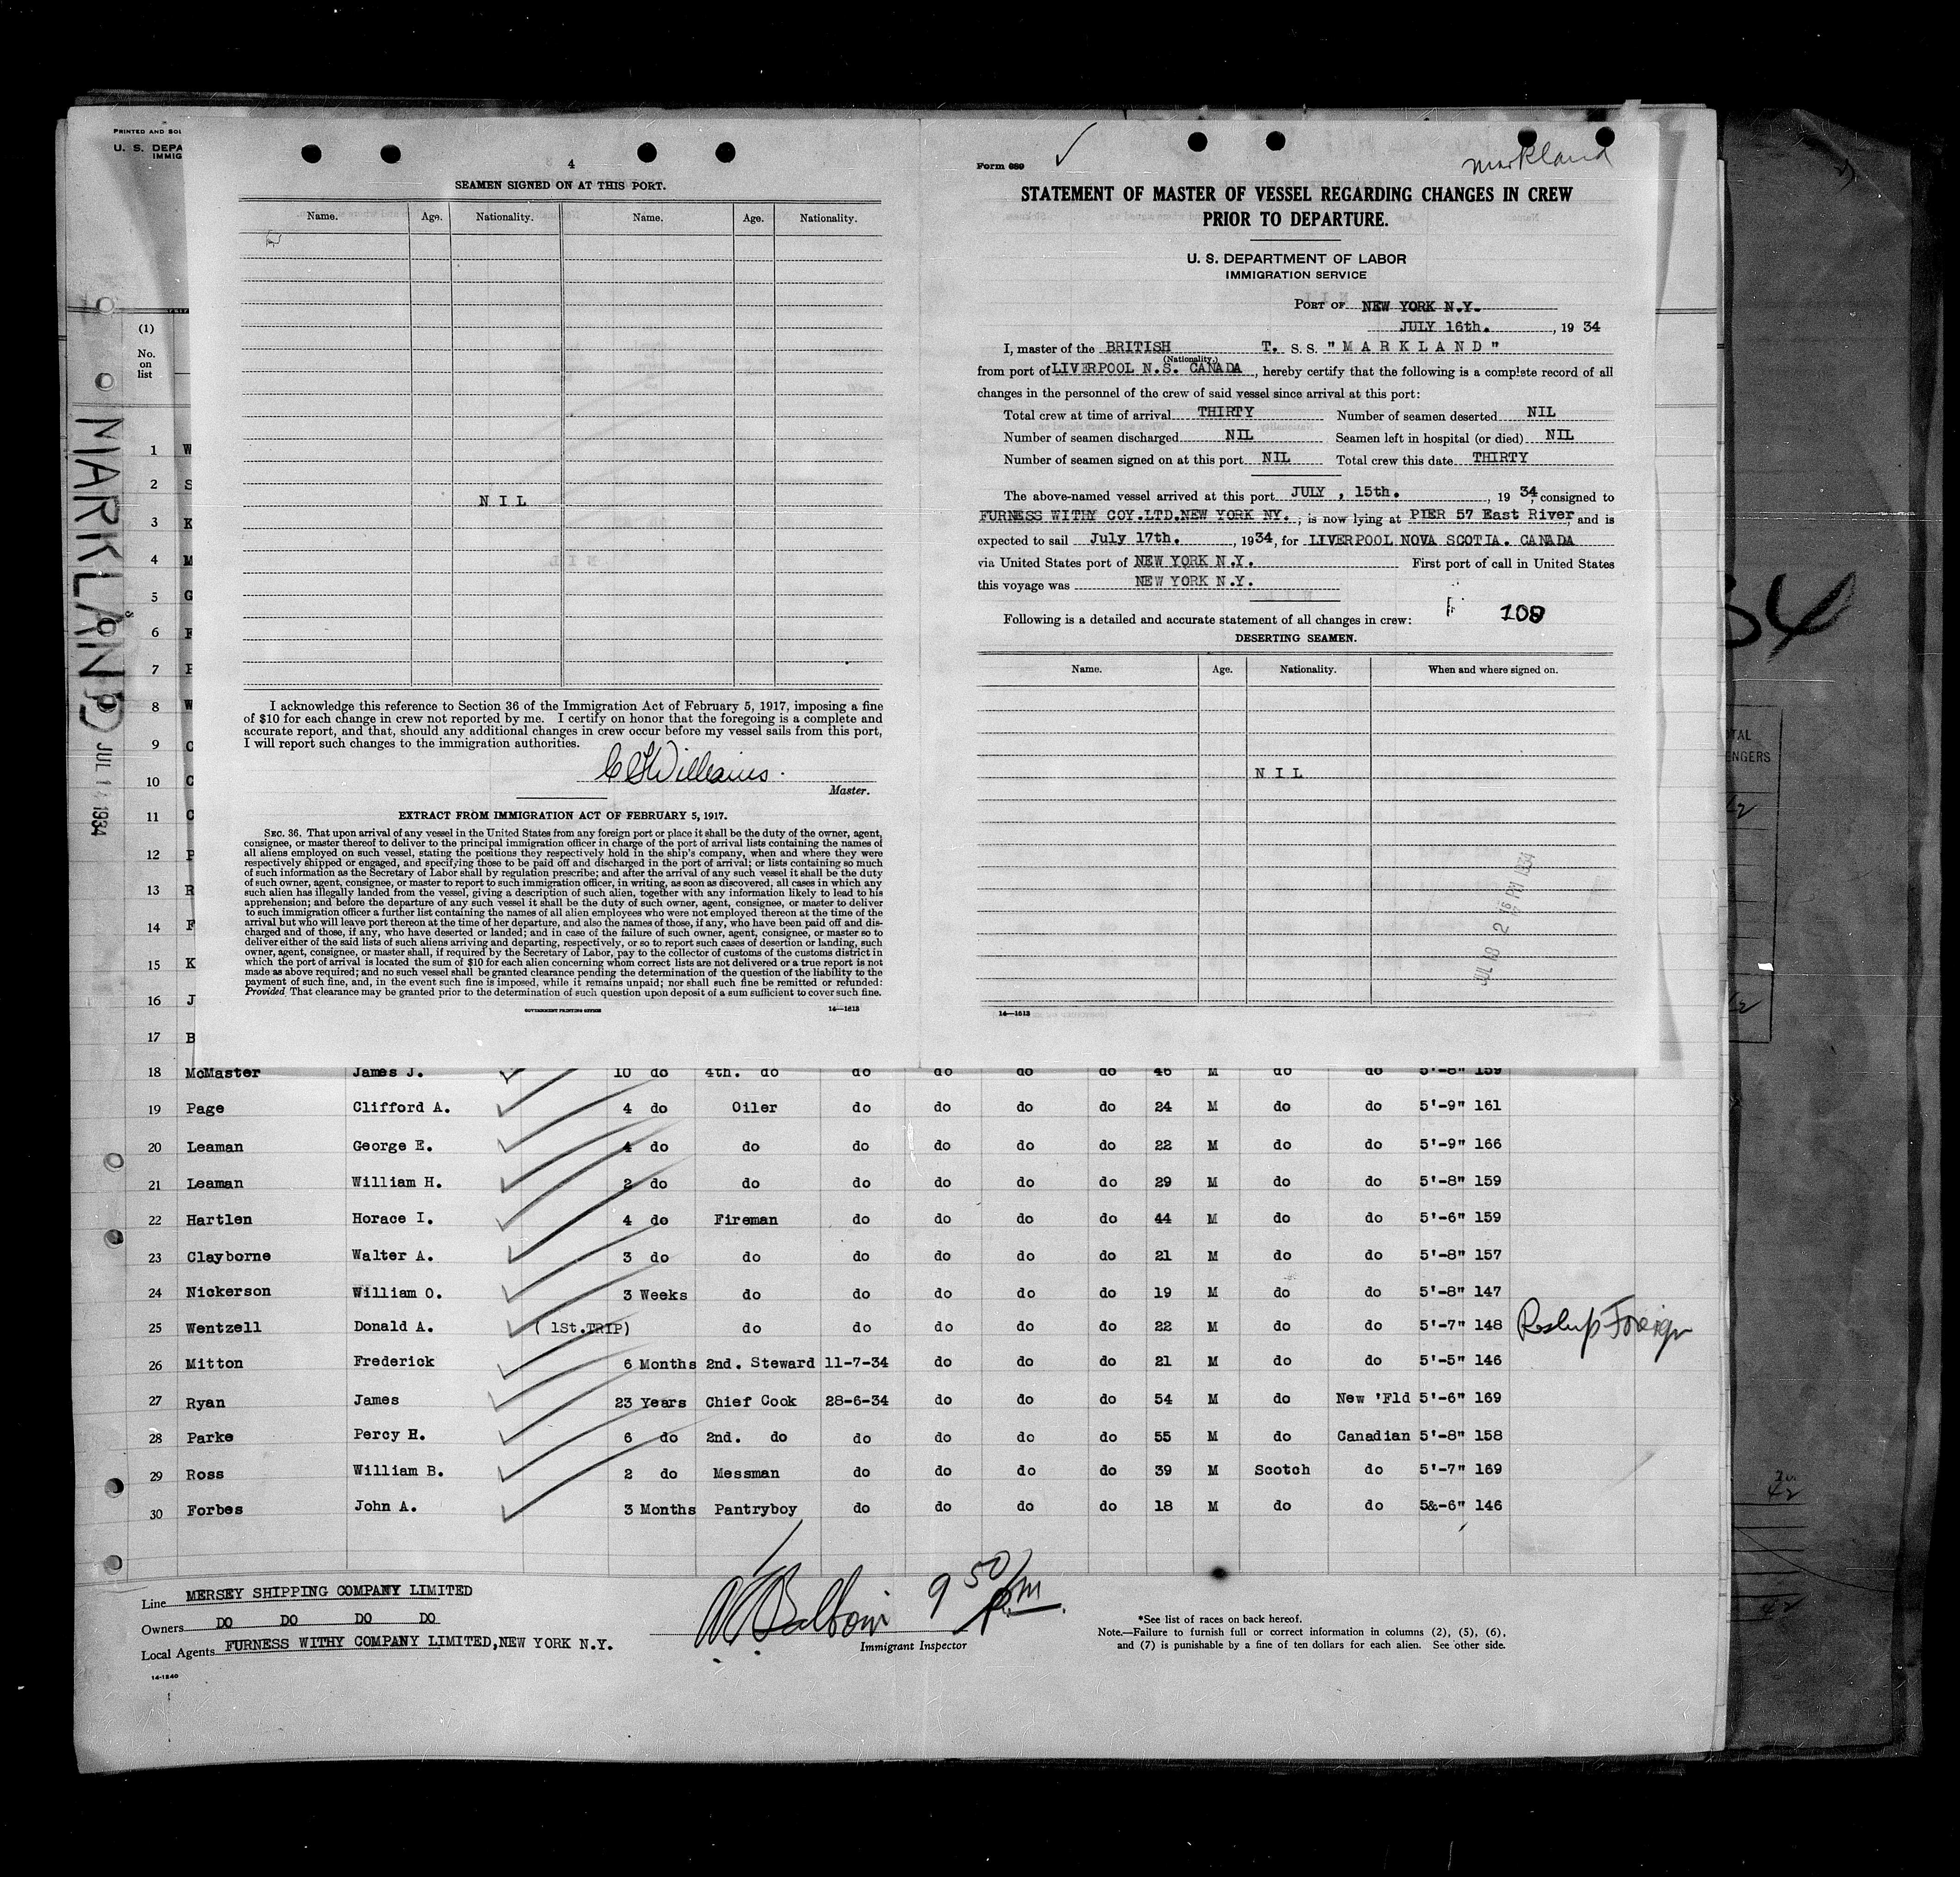 PRINTED AND SOL
U. S. DEPA
IMMIG
(1)
No.
on
list
MARKLAND
JUL 14 1934
1 W
2 S
3 K
4 M
5 G
6 F
7 P
8 W
9 C
10 C
11 C
12 P
13 R
14 F
15 K
16 J
17 B
4
SEAMEN SIGNED ON AT THIS PORT.
Name. Age. Nationality. Name. Age. Nationality.
N I L
I acknowledge this reference to Section 36 of the Immigration Act of February 5, 1917, imposing a fine
of $10 for each change in crew not reported by me. I certify on honor that the foregoing is a complete and
accurate report, and that, should any additional changes in crew occur before my vessel sails from this port,
I will report such changes to the immigration authorities.
Williams.
Master.
EXTRACT FROM IMMIGRATION ACT OF FEBRUARY 5, 1917.
SEC. 36. That upon arrival of any vessel in the United States from any foreign port or place it shall be the duty of the owner, agent,
consignee, or master thereof to deliver to the principal immigration officer in charge of the port of arrival lists containing the names of
all aliens employed on such vessel, stating the positions they respectively hold in the ship's company, when and where they were
respectively shipped or engaged, and specifying those to be paid off and discharged in the port of arrival; or lists containing so much
of such information as the Secretary of Labor shall by regulation prescribe; and after the arrival of any such vessel it shall be the duty
of such owner, agent, consignee, or master to report to such immigration officer, in writing, as soon as discovered, all cases in which any
such alien has illegally landed from the vessel, giving a description of such alien, together with any information likely to lead to his
apprehension; and before the departure of any such vessel it shall be the duty of such owner, agent, consignee, or master to deliver
to such immigration officer a further list containing the names of all alien employees who were not employed thereon at the time of the
arrival but who will leave port thereon at the time of her departure, and also the names of those, if any, who have been paid off and dis-
charged and of those, if any, who have deserted or landed; and in case of the failure of such owner, agent, consignee, or master so to
deliver either of the said lists of such aliens arriving and departing, respectively, or so to report such cases of desertion or landing, such
owner, agent, consignee, or master shall, if required by the Secretary of Labor, pay to the collector of customs of the customs district in
which the port of arrival is located the sum of $10 for each alien concerning whom correct lists are not delivered or a true report is not
made as above required; and no such vessel shall be granted clearance pending the determination of the question of the liability to the
payment of such fine, and, in the event such fine is imposed, while it remains unpaid; nor shall such fine be remitted or refunded:
Provided That clearance may be granted prior to the determination of such question upon deposit of a sum sufficient to cover such fine.
GOVERNMENT PRINTING OFFICE 14—1613
Form 689
Markland
STATEMENT OF MASTER OF VESSEL REGARDING CHANGES IN CREW
PRIOR TO DEPARTURE.
U. S. DEPARTMENT OF LABOR
IMMIGRATION SERVICE
PORT OF NEW YORK N.Y.
JULY 16th. , 19 34
I, master of the BRITISH T. S. S. "M A R K L A N D"
(Nationality.)
from port of LIVERPOOL N.S. CANADA , hereby certify that the following is a complete record of all
changes in the personnel of the crew of said vessel since arrival at this port:
Total crew at time of arrival THIRTY Number of seamen deserted NIL
Number of seamen discharged NIL Seamen left in hospital (or died) NIL
Number of seamen signed on at this port NIL Total crew this date THIRTY
The above-named vessel arrived at this port JULY , 15th. , 19 34, consigned to
FURNESS WITHY COY.LTD.NEW YORK NY. ; is now lying at PIER 57 East River, and is
expected to sail July 17th. , 1934, for LIVERPOOL NOVA SCOTIA. CANADA
via United States port of NEW YORK N.Y. First port of call in United States
this voyage was NEW YORK N.Y.
109
Following is a detailed and accurate statement of all changes in crew:
DESERTING SEAMEN.
Name. Age. Nationality. When and where signed on.
N I L
JUL 18 2 16 PM 1934
14—1613
34
18 McMaster James J. 10 do 4th. do do do do do 46 M do do 5'-8" 159
19 Page Clifford A. 4 do Oiler do do do do 24 M do do 5'-9" 161
20 Leaman George E. 4 do do do do do do 22 M do do 5'-9" 166
21 Leaman William H. 2 do do do do do do 29 M do do 5'-8" 159
22 Hartlen Horace I. 4 do Fireman do do do do 44 M do do 5'-6" 159
23 Clayborne Walter A. 3 do do do do do do 21 M do do 5'-8" 157
24 Nickerson William O. 3 Weeks do do do do do 19 M do do 5'-8" 147
25 Wentzell Donald A. ( 1St.TRIP) do do do do do 22 M do do 5'-7" 148 Foreign
26 Mitton Frederick 6 Months 2nd. Steward 11-7-34 do do do 21 M do do 5'-5" 146
27 Ryan James 23 Years Chief Cook 28-6-34 do do do 54 M do New 'Fld 5'-6" 169
28 Parke Percy H. 6 do 2nd. do do do do do 55 M do Canadian 5'-8" 158
29 Ross William B. 2 do Messman do do do do 39 M Scotch do 5'-7" 169
30 Forbes John A. 3 Months Pantryboy do do do do 18 M do do 5&-6" 146
Line MERSEY SHIPPING COMPANY LIMITED
Owners DO DO DO DO
Local Agents FURNESS WITHY COMPANY LIMITED,NEW YORK N.Y.
14-1240
9 50 p.m.
Immigrant Inspector
*See list of races on back hereof.
Note.—Failure to furnish full or correct information in columns (2), (5), (6),
and (7) is punishable by a fine of ten dollars for each alien. See other side.